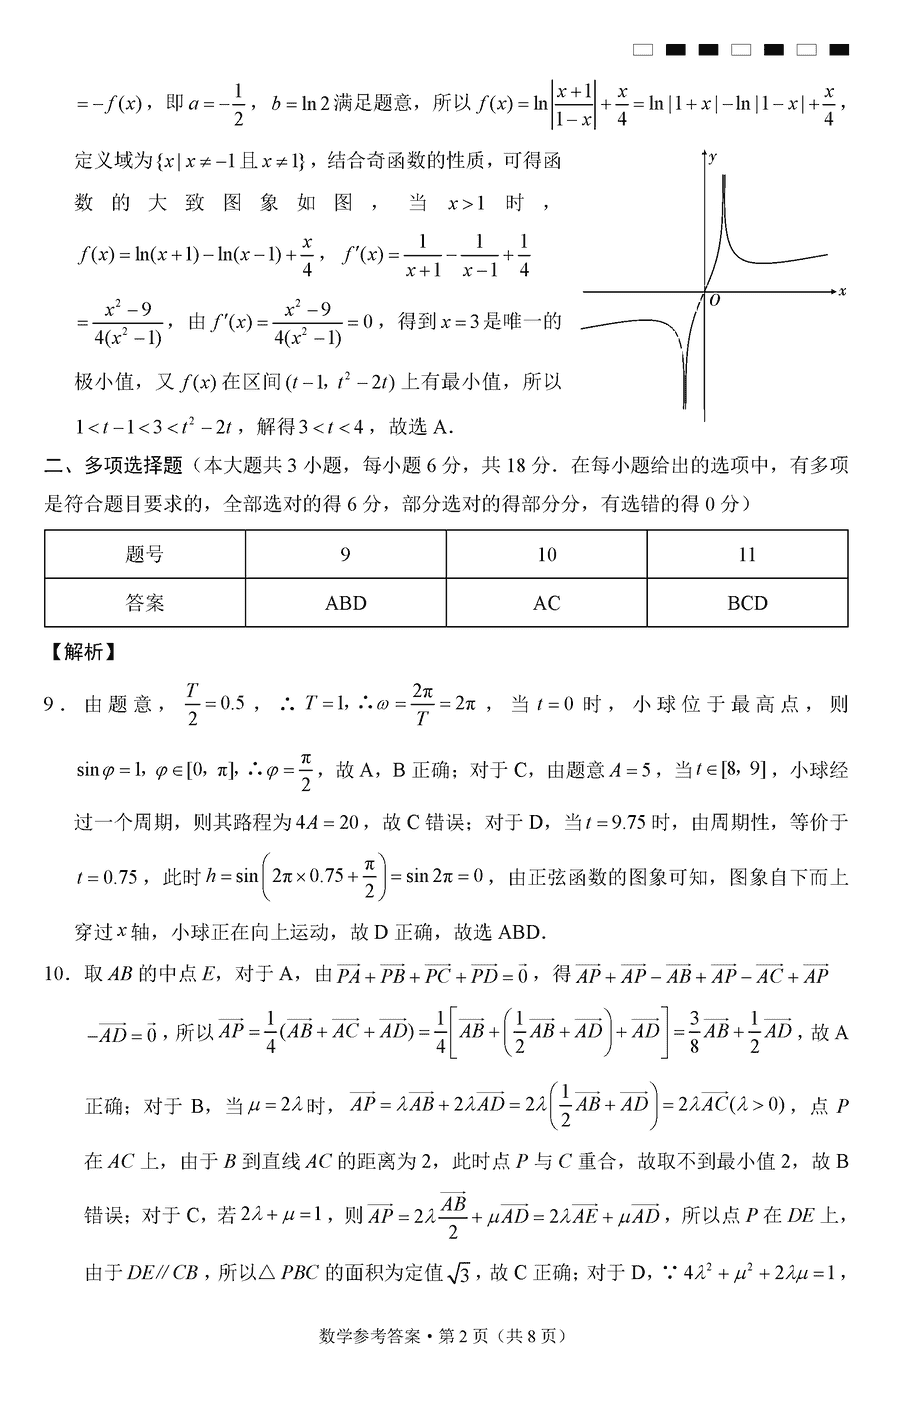 = −f(x)，即 a = −1/2，b = ln 2 满足题意，所以 f(x) = ln|(x+1)/(1−x)| + x/4 = ln|1+x| − ln|1−x| + x/4，
定义域为{x | x ≠ −1 且 x ≠ 1}，结合奇函数的性质，可得函
数的大致图象如图，当 x > 1 时，
f(x) = ln(x+1) − ln(x−1) + x/4，f′(x) = 1/(x+1) − 1/(x−1) + 1/4
= (x²−9)/(4(x²−1))，由 f′(x) = (x²−9)/(4(x²−1)) = 0，得到 x = 3 是唯一的
极小值，又 f(x) 在区间 (t−1，t²−2t) 上有最小值，所以
1 < t−1 < 3 < t²−2t，解得 3 < t < 4，故选 A．
y
x
O
二、多项选择题（本大题共 3 小题，每小题 6 分，共 18 分．在每小题给出的选项中，有多项
是符合题目要求的，全部选对的得 6 分，部分选对的得部分分，有选错的得 0 分）
题号 9 10 11
答案 ABD AC BCD
【解析】
9．由题意，T/2 = 0.5，∴ T = 1，∴ω = 2π/T = 2π，当 t = 0 时，小球位于最高点，则
sinφ = 1，φ∈[0，π]，∴φ = π/2，故 A，B 正确；对于 C，由题意 A = 5，当 t∈[8，9]，小球经
过一个周期，则其路程为 4A = 20，故 C 错误；对于 D，当 t = 9.75 时，由周期性，等价于
t = 0.75，此时 h = sin(2π×0.75 + π/2) = sin 2π = 0，由正弦函数的图象可知，图象自下而上
穿过 x 轴，小球正在向上运动，故 D 正确，故选 ABD．
10．取 AB 的中点 E，对于 A，由 PA⃗ + PB⃗ + PC⃗ + PD⃗ = 0⃗，得 AP⃗ + AP⃗ − AB⃗ + AP⃗ − AC⃗ + AP⃗
−AD⃗ = 0⃗，所以 AP⃗ = 1/4(AB⃗ + AC⃗ + AD⃗) = 1/4[AB⃗ + (1/2 AB⃗ + AD⃗) + AD⃗] = 3/8 AB⃗ + 1/2 AD⃗，故 A
正确；对于 B，当 μ = 2λ 时，AP⃗ = λAB⃗ + 2λAD⃗ = 2λ(1/2 AB⃗ + AD⃗) = 2λAC⃗(λ > 0)，点 P
在 AC 上，由于 B 到直线 AC 的距离为 2，此时点 P 与 C 重合，故取不到最小值 2，故 B
错误；对于 C，若 2λ + μ = 1，则 AP⃗ = 2λ AB⃗/2 + μAD⃗ = 2λAE⃗ + μAD⃗，所以点 P 在 DE 上，
由于 DE∥CB，所以△PBC 的面积为定值 √3，故 C 正确；对于 D，∵ 4λ² + μ² + 2λμ = 1，
数学参考答案·第 2 页（共 8 页）